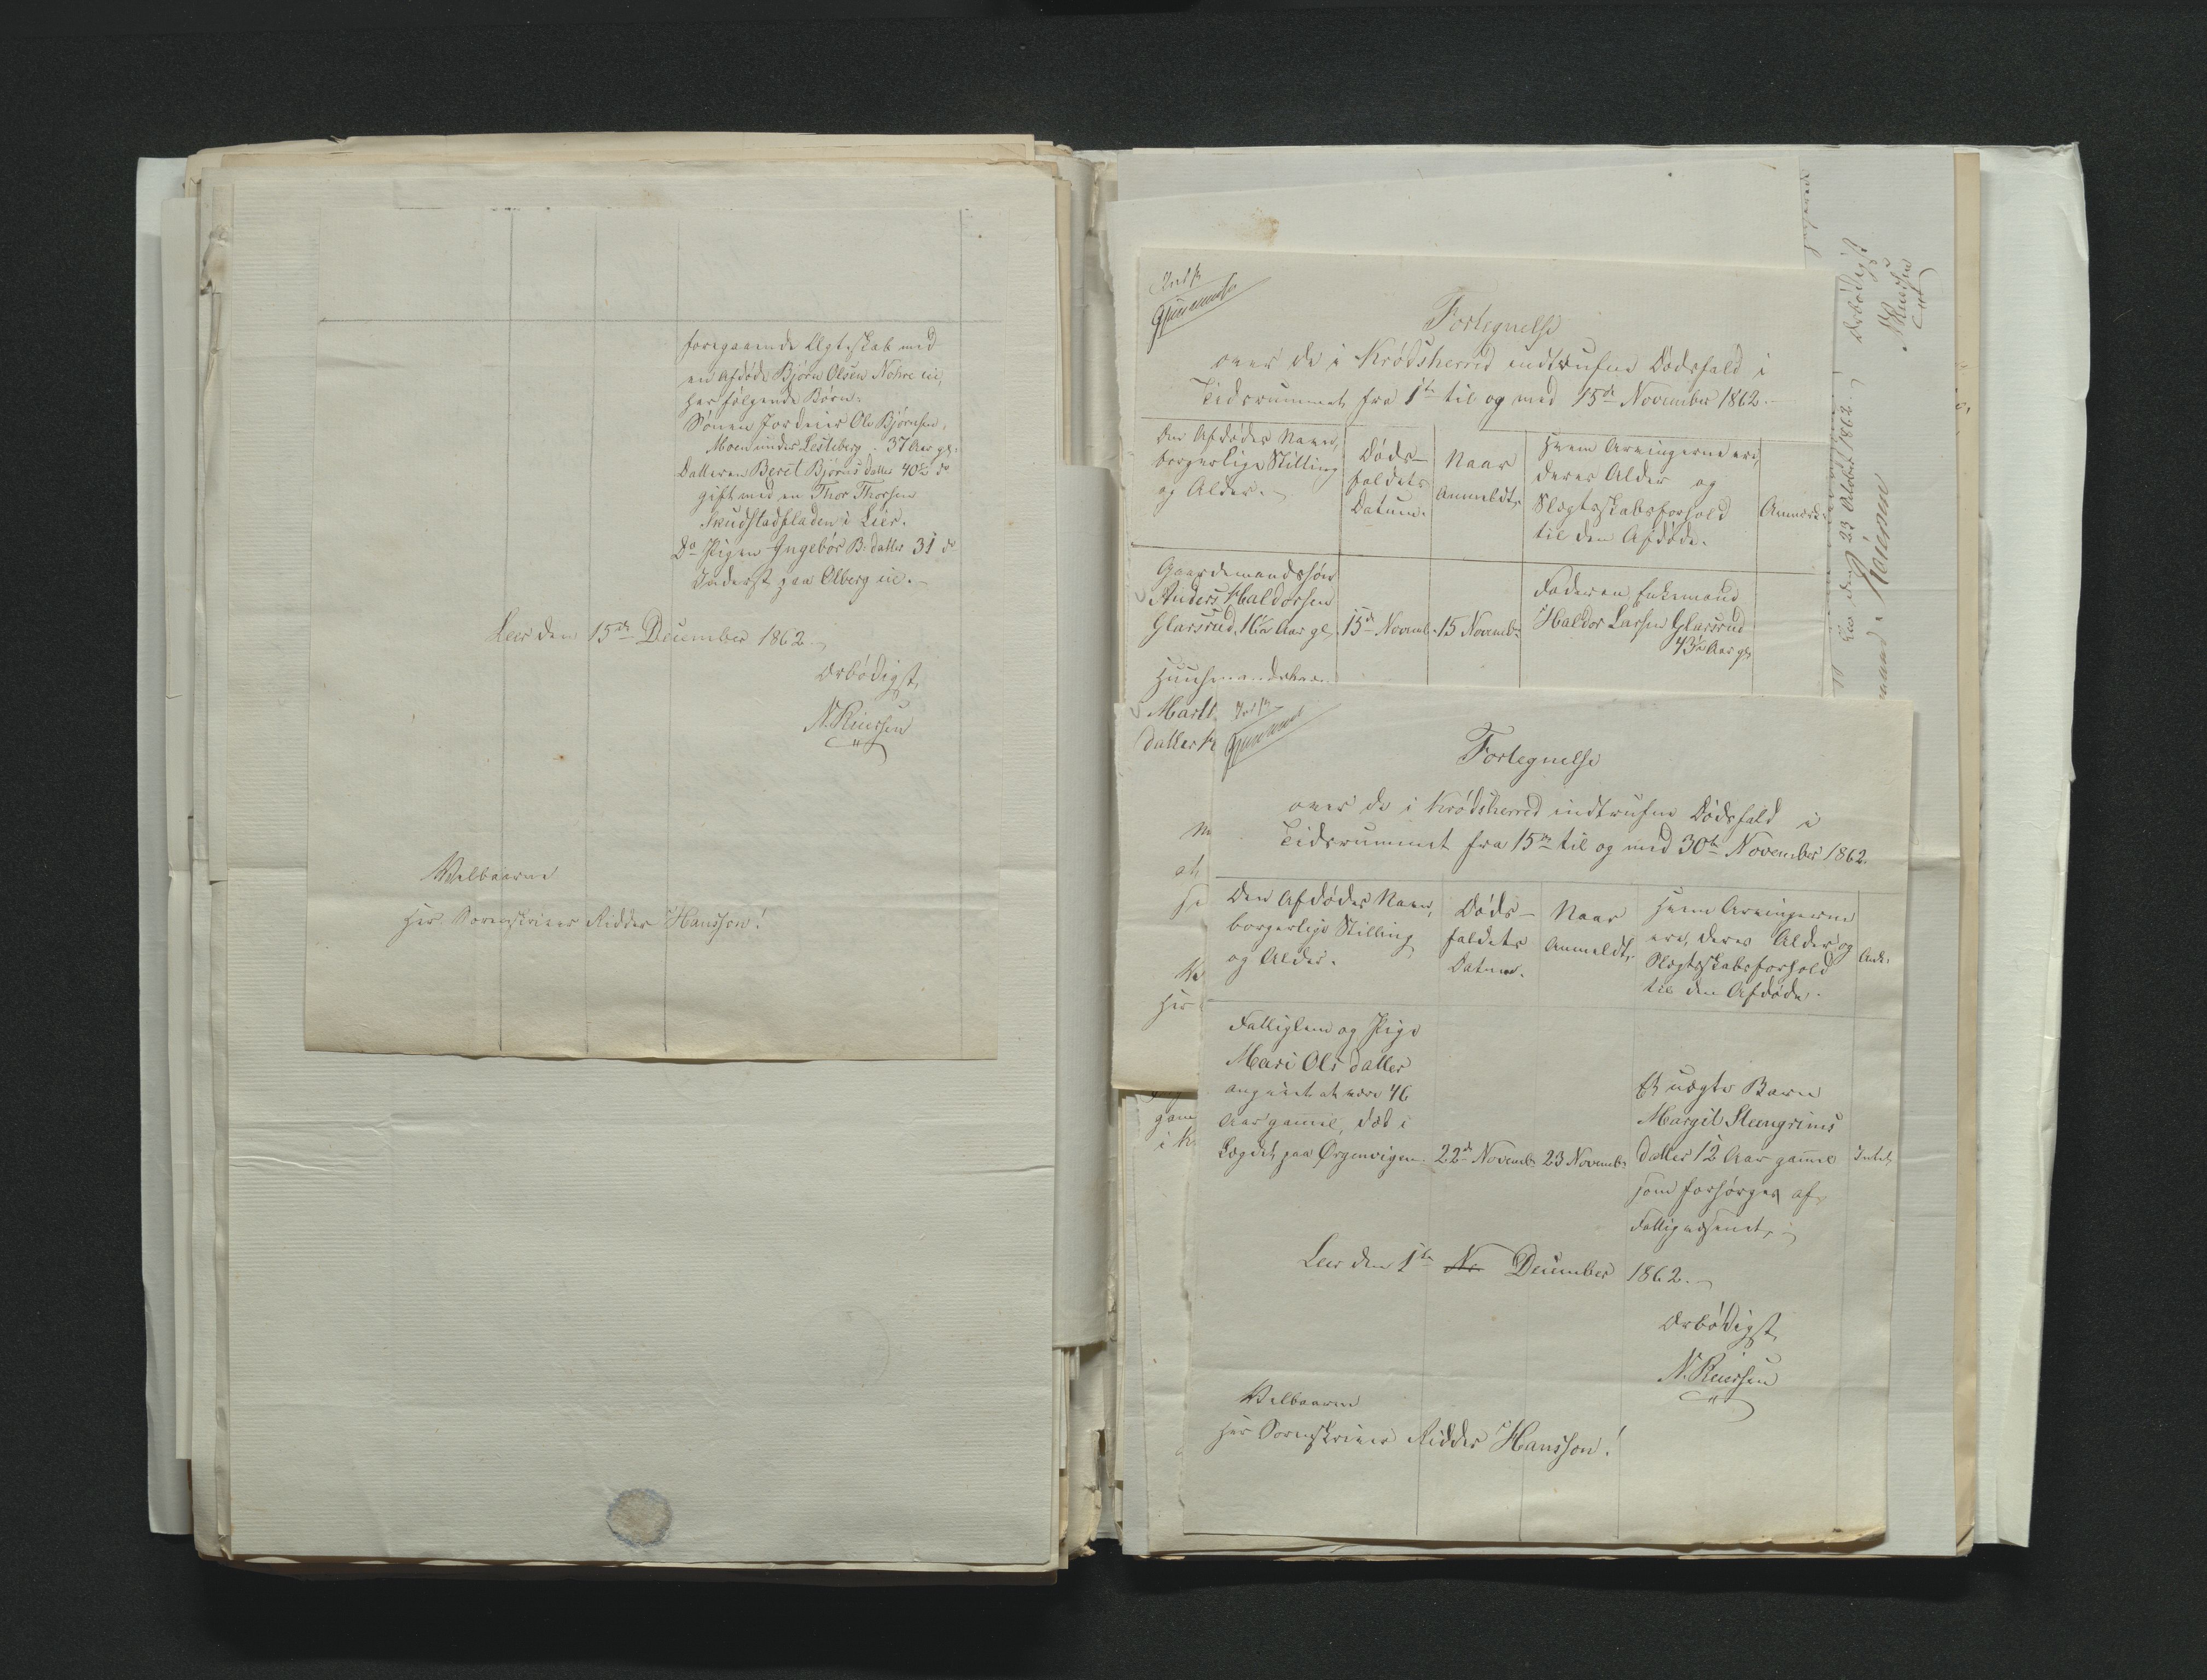 foregaaende Ægteskab med
en afdøde Bjørn Olsen Nohre eie,
har følgende Børn:
Sønen Jordeier Ole Bjørnsen,
Moen under Lesteberg. 37 Aar gl:
Datteren Beret Bjørns datter 40½ do
gift med en Thor Thorsen
Skudstadfladen i Lier.
Do Pigen Ingebor B: datter 31 do
Inderst paa Olberg eie.
Leer den 15de December 1862.
Ærbødigst
N. Reiersen
Velbaarne
Herr Sorenskriver Ridder Hansson!
Fortegnelse
over de i Krødsherred indtrufne Dødsfald i
Tidsrummet fra 1ste til og med 15de November 1862.
Den Afdødes Navn,
borgerlige Stilling
og Alder.
Døds-
faldets
Datum.
Naar
Anmeldt.
Hvem Arvingerne ere,
deres Alder og
Slægtsskabsforhold
til den Afdøde.
Gaardemandssøn
Anders Haldorsen
Glarsrud, 16½ Aar gl.
15de Novemb.
15 Novemb:
Faderen Enkemand
Haldor Larsen Glarsrud
43½ Aar gl
Huusmandsbarn
Marit
datter
23 Octobr 1862.
Ærbødigst
N. Reiersen
Fortegnelse
over de i Krødsherred indtrufne Dødsfald i
Tidsrummet fra 15de til og med 30te November 1862.
Den Afdødes Navn,
borgerlige Stilling
og Alder.
Døds-
faldets
Datum.
Naar
Anmeldt.
Hvem Arvingerne
ere, deres Alder og
Slægtsskabsforhold
til den Afdøde.
Fattiglem og Pige
Mari Ols datter
angivet at være 46
Aar gammel, død i
Lægdet paa Ørgenvigen.
22de Novemb.
23 Novemb:
Et uægte Barn
Margit Steengrims
datter 12 Aar gammel
som forsørges af
Fattigvæsenet.
Intet
Leer den 1ste December 1862.
Ærbødigst
N. Reiersen
Velbaarne
Herr Sorenskriver Ridder Hansson!